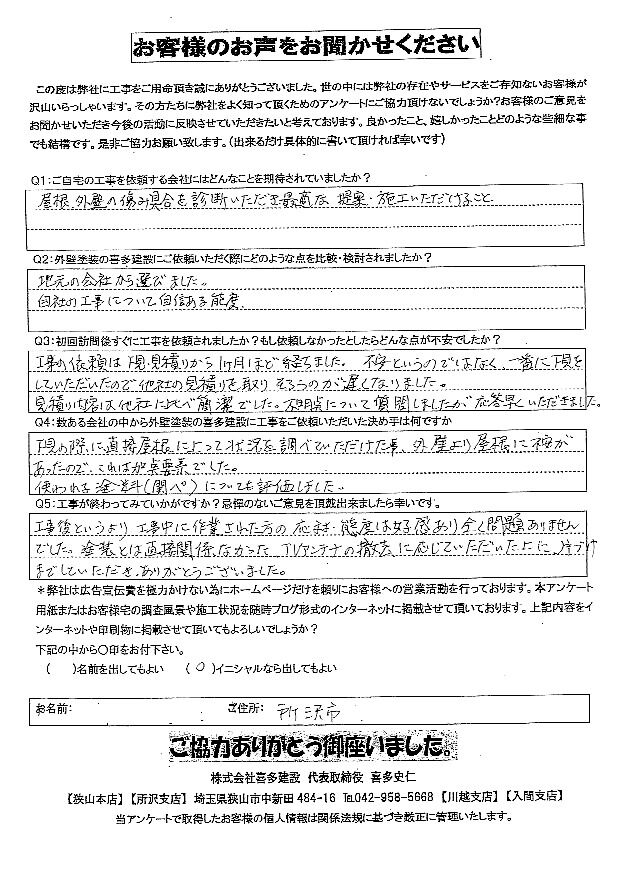 お客様のお声をお聞かせください
この度は弊社に工事をご用命頂き誠にありがとうございました。世の中には弊社の存在やサービスをご存知ないお客様が
沢山いらっしゃいます。その方たちに弊社をよく知って頂くためのアンケートにご協力頂けないでしょうか?お客様のご意見を
お聞かせいただき今後の活動に反映させていただきたいと考えております。良かったこと、嬉しかったことどのような些細な事
でも結構です。是非ご協力お願い致します。(出来るだけ具体的に書いて頂ければ幸いです)
Q1:ご自宅の工事を依頼する会社にはどんなことを期待されていましたか?
屋根、外壁の傷み具合を診断いただき最高な提案・施工いただけること
Q2:外壁塗装の喜多建設にご依頼いただく際にどのような点を比較・検討されましたか?
地元の会社から選びました。
自社の工事について自信ある態度。
Q3:初回訪問後すぐに工事を依頼されましたか?もし依頼しなかったとしたらどんな点が不安でしたか?
工事の依頼は下見・見積りから1ヶ月ほど経ちました。不安というのではなく、一番に下見を
していただいたので他社の見積りを取りそろうのが遅くなりました。
見積り内容は他社に比べ簡潔でした。不明点について質問しましたが応答早くいただきました。
Q4:数ある会社の中から外壁塗装の喜多建設に工事をご依頼いただいた決め手は何ですか
下見の際に直接屋根に よって状況を調べていただけた事、外壁より屋根に神が
あったので、これは 要素でした。
使われる塗料(関ペ)についても評価しました。
Q5:工事が終わってみていかがですか?忌憚のないご意見を頂戴出来ましたら幸いです。
工事後というより工事中に作業された方の応対・態度は好感あり全く問題ありません
でした。塗装とは直接関係なかったTVアンテナの撤去に応じていただいた上に、片づけ
までしていただき、ありがとうございました。
*弊社は広告宣伝費を極力かけない為にホームページだけを頼りにお客様への営業活動を行っております。本アンケート
用紙またはお客様宅の調査風景や施工状況を随時ブログ形式のインターネットに掲載させて頂いております。上記内容をイ
ンターネットや印刷物に掲載させて頂いてもよろしいでしょうか?
下記の中から〇印をお付下さい。
( )名前を出してもよい (〇)イニシャルなら出してもよい
お名前: ご住所: 所沢市
ご協力ありがとう御座いました。
株式会社喜多建設 代表取締役 喜多史仁
【狭山本店】【所沢支店】埼玉県狭山市中新田484-16 ℡042-958-5668【川越支店】【入間支店】
当アンケートで取得したお客様の個人情報は関係法規に基づき厳正に管理いたします。